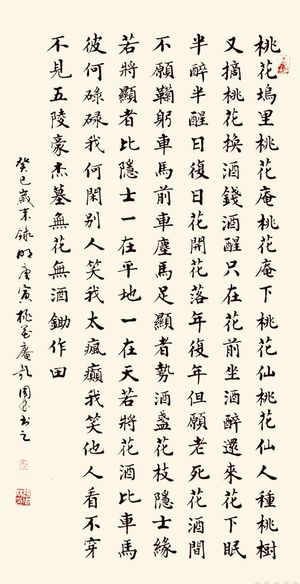 桃花塢里桃花庵桃花庵下桃花仙桃花仙人種桃樹
又摘桃花換酒錢酒醒只在花前坐酒醉還來花下眠
半醉半醒日復日花開花落年復年但願老死花酒間
不願鞠躬車馬前車塵馬足顯者勢酒盞花枝隱士緣
若將顯者比隱士一在平地一在天若將花酒比車馬
彼何碌碌我何閑別人笑我太瘋癲我笑他人看不穿
不見五陵豪杰墓無花無酒鋤作田
癸巳歲末錄明唐寅桃花庵歌周书之